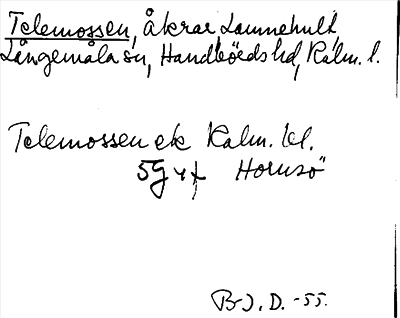 Telemossen, åkrar, Lamnehult
Långemåla sn, Handbörds hd, Kalm. l.
Telemossen ek Kalm. kl.
5G Hornsö
B-J. D. -55.